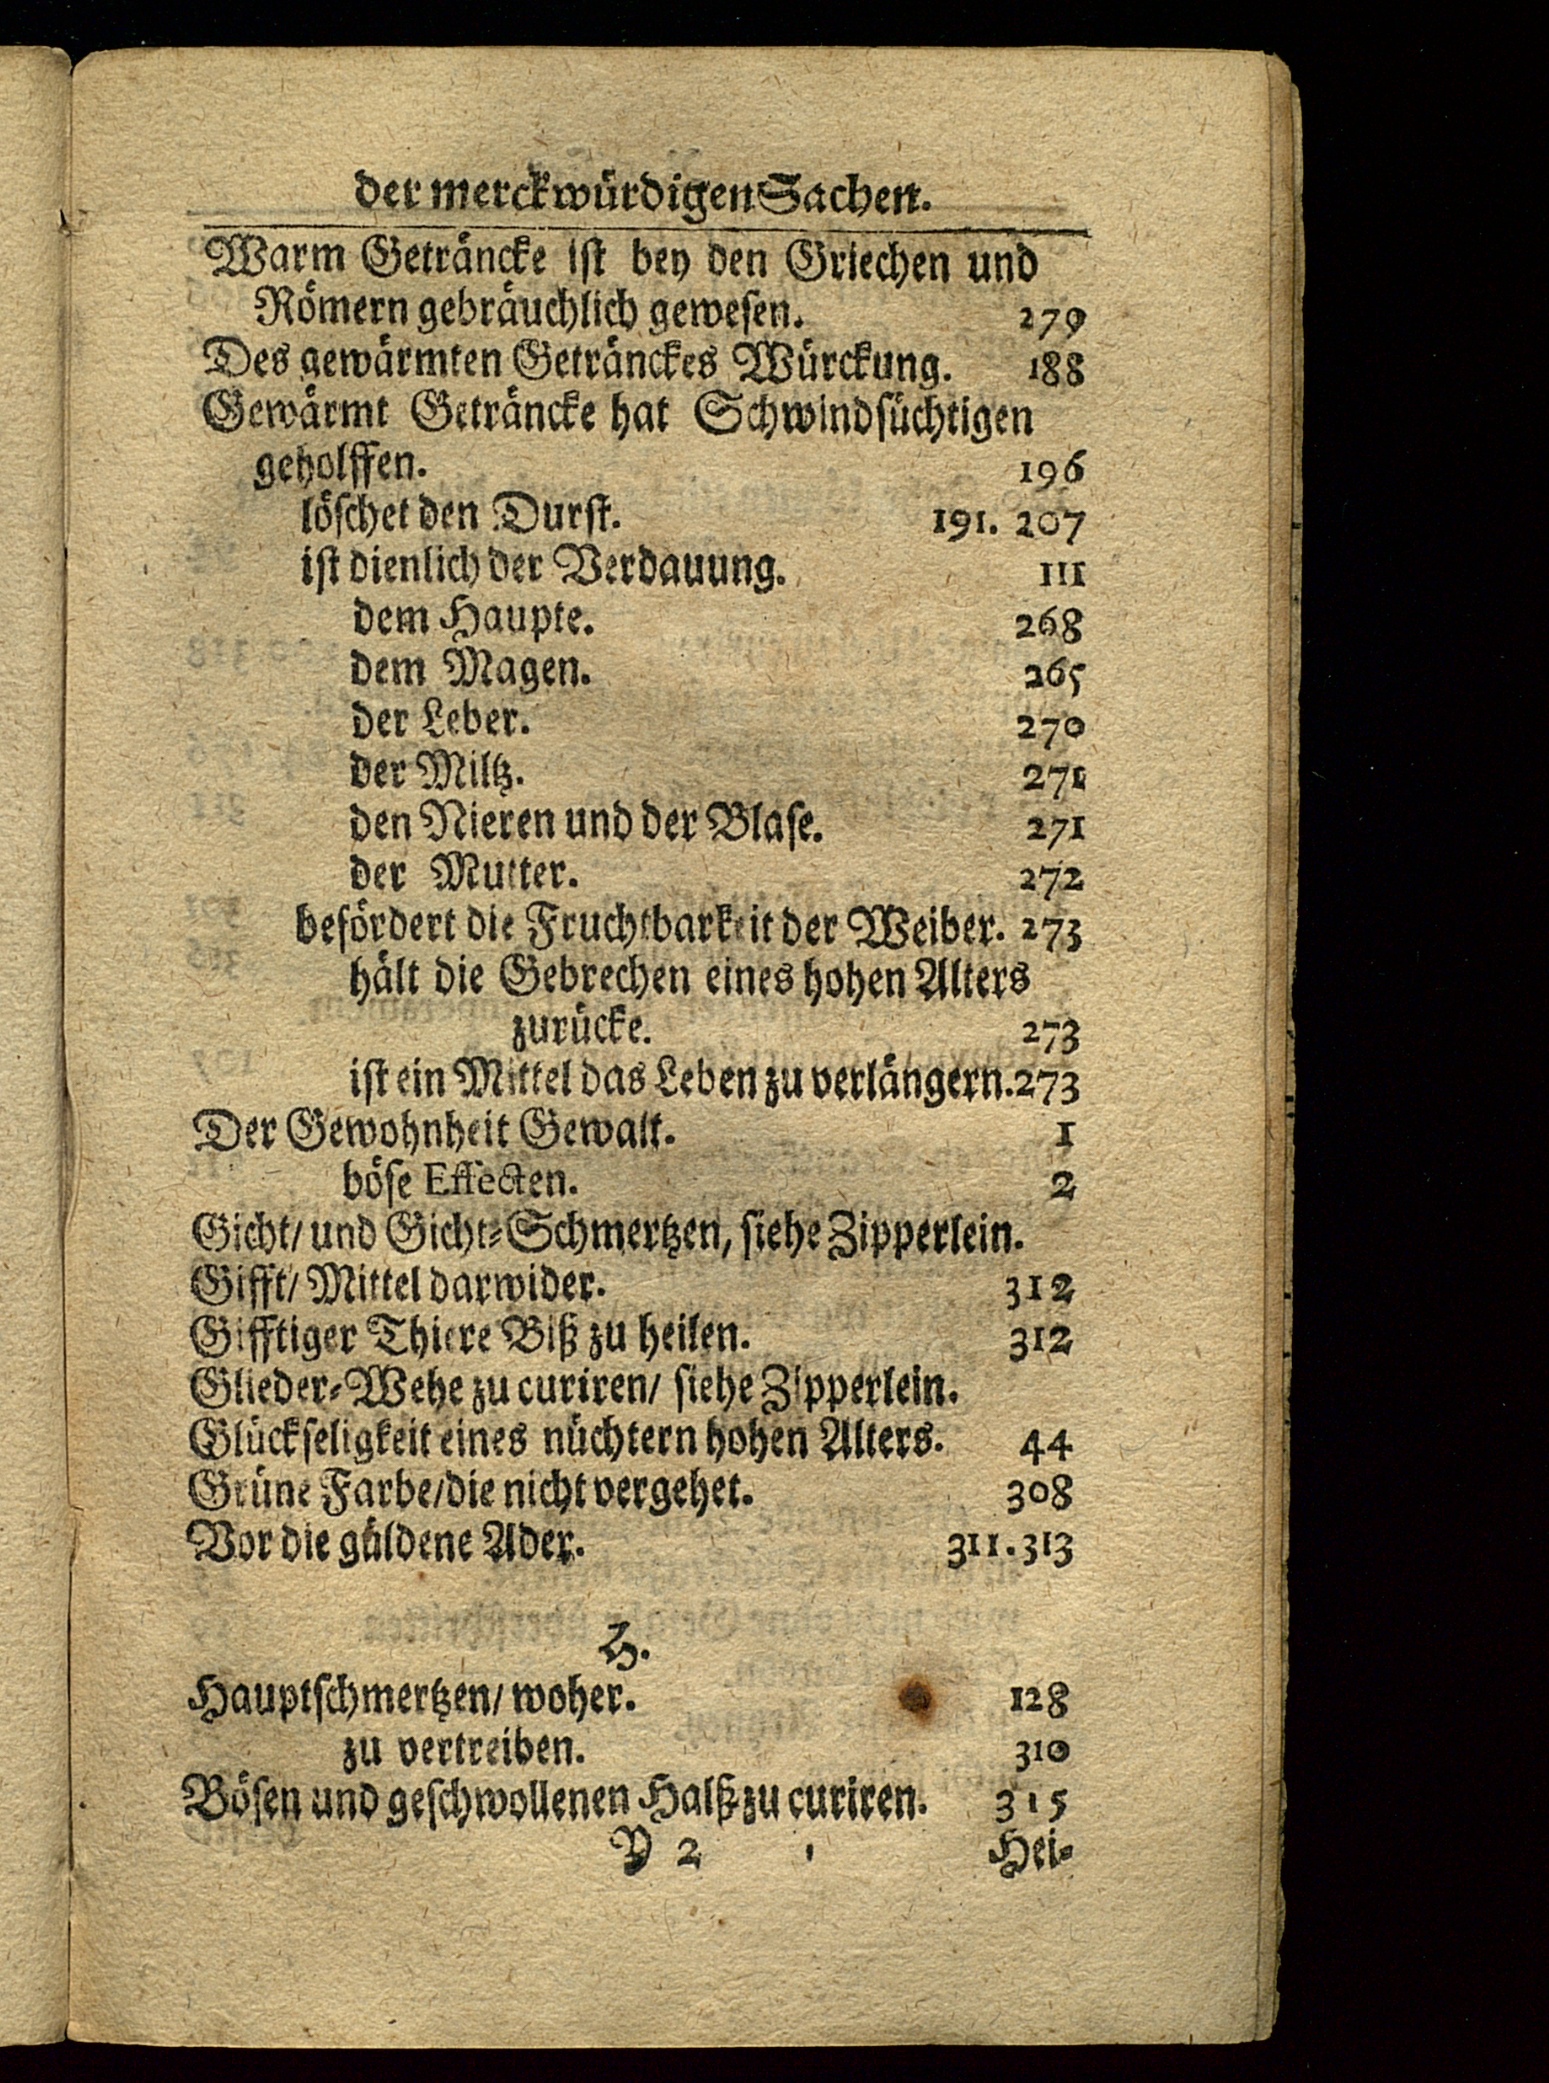 der merckwürdigen Sachen.
Warm Geträncke ist bey den Griechen und
Römern gebräuchlich gewesen. 279
Des gewärmten Getränckes Würckung. 188
Gewärmt Geträncke hat Schwindsüchtigen
geholffen. 196
löschet den Durst. 191. 207
ist dienlich der Verdauung. 111
dem Haupte. 268
dem Magen. 265
der Leber. 270
der Miltz. 271
den Nieren und der Blase. 271
der Mutter. 272
befördert die Fruchtbarkeit der Weiber. 273
hält die Gebrechen eines hohen Alters
zurücke. 273
ist ein Mittel das Leben zu verlängern. 273
Der Gewohnheit Gewalt. 1
böse Effecten. 2
Gicht/ und Gicht-Schmertzen, siehe Zipperlein.
Gifft/ Mittel darwider. 312
Gifftiger Thiere Biß zu heilen. 312
Glieder-Wehe zu curiren/ siehe Zipperlein.
Glückseligkeit eines nüchtern hohen Alters. 44
Grüne Farbe/die nicht vergehet. 308
Vor die güldene Ader. 311. 313
H.
Hauptschmertzen/ woher. 128
zu vertreiben. 310
Bösen und geschwollenen Halß zu curiren. 315
Y 2 Hei-